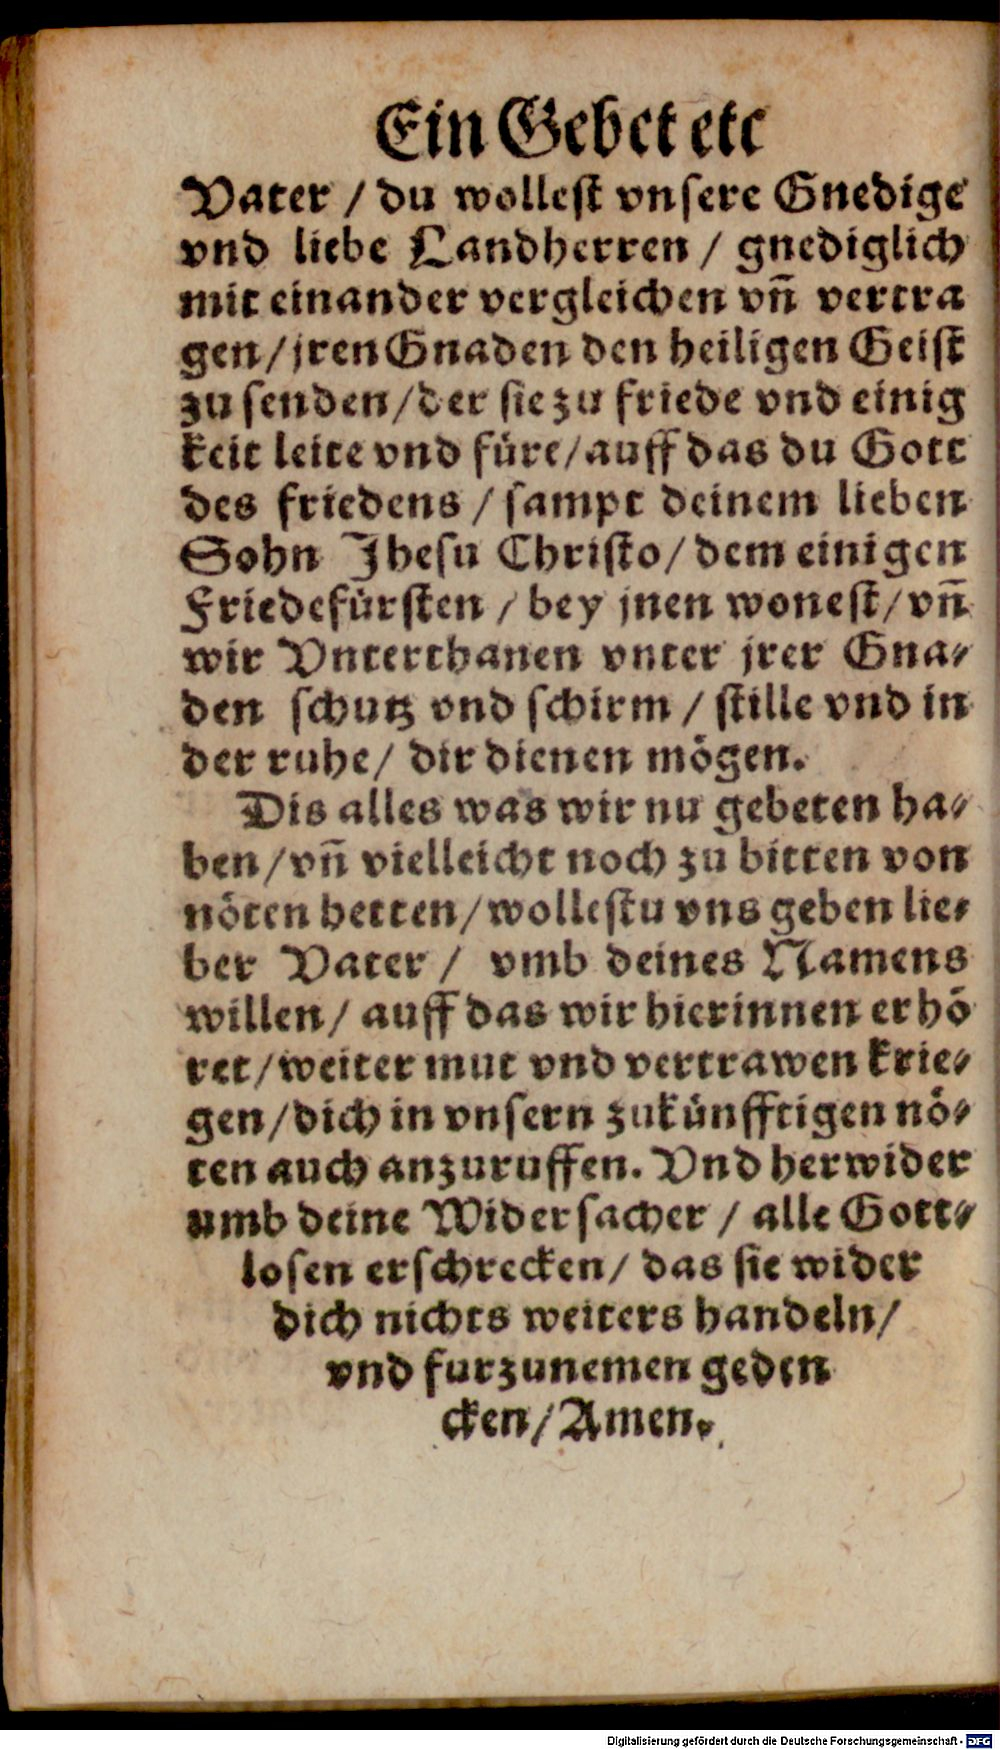 Ein Gebet etc
Vater / du wollest vnsere Gnedige
vnd liebe Landherren / gnediglich
mit einander vergleichen vñ vertra
gen / jren Gnaden den heiligen Geist
zu senden / der sie zu friede vnd einig
keit leite vnd füre / auff das du Gott
des friedens / sampt deinem lieben
Sohn Jhesu Christo / dem einigen
Friedefürsten / bey jnen wonest / vñ
wir Vnterthanen vnter jrer Gna⸗
den schutz vnd schirm / stille vnd in
der ruhe / dir dienen mögen.
Dis alles was wir nu gebeten ha⸗
ben / vñ vielleicht noch zu bitten von
nöten hetten / wollestu vns geben lie⸗
ber Vater / vmb deines Namens
willen / auff das wir hierinnen erhö
ret / weiter mut vnd vertrawen krie⸗
gen / dich in vnsern zukünfftigen nö⸗
ten auch anzuruffen. Vnd herwider
umb deine Widersacher / alle Gott⸗
losen erschrecken / das sie wider
dich nichts weiters handeln /
vnd furzunemen geden
cken / Amen.
Digitalisierung gefördert durch die Deutsche Forschungsgemeinschaft - DFG